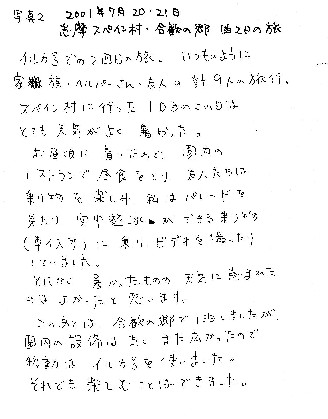 写真2 2001年7月20・21日
志摩スペイン村・合歓の郷 1泊2日の旅
イル方号での2回目の旅。いつものように
家族・ヘルパーさん・友人の計9人の旅行。
スペイン村に行った1日目のこの日は
とても天気がよく暑かった。
お昼頃に着いたので、園内の
レストランで昼食をとり 友人たちは
乗り物を楽しみ 私はパレードを
見たり 空中遊泳ができる乗り物
(車イス可)に乗り ビデオを撮ったり
していました。
とにかく 暑かったものの 天気に恵まれた
のはよかったと思います。
このあとは 合歓の郷で1泊しましたが、
園内の設備は良く また広かったので
移動は イル方号を使いました。
それでも楽しむことはできました。